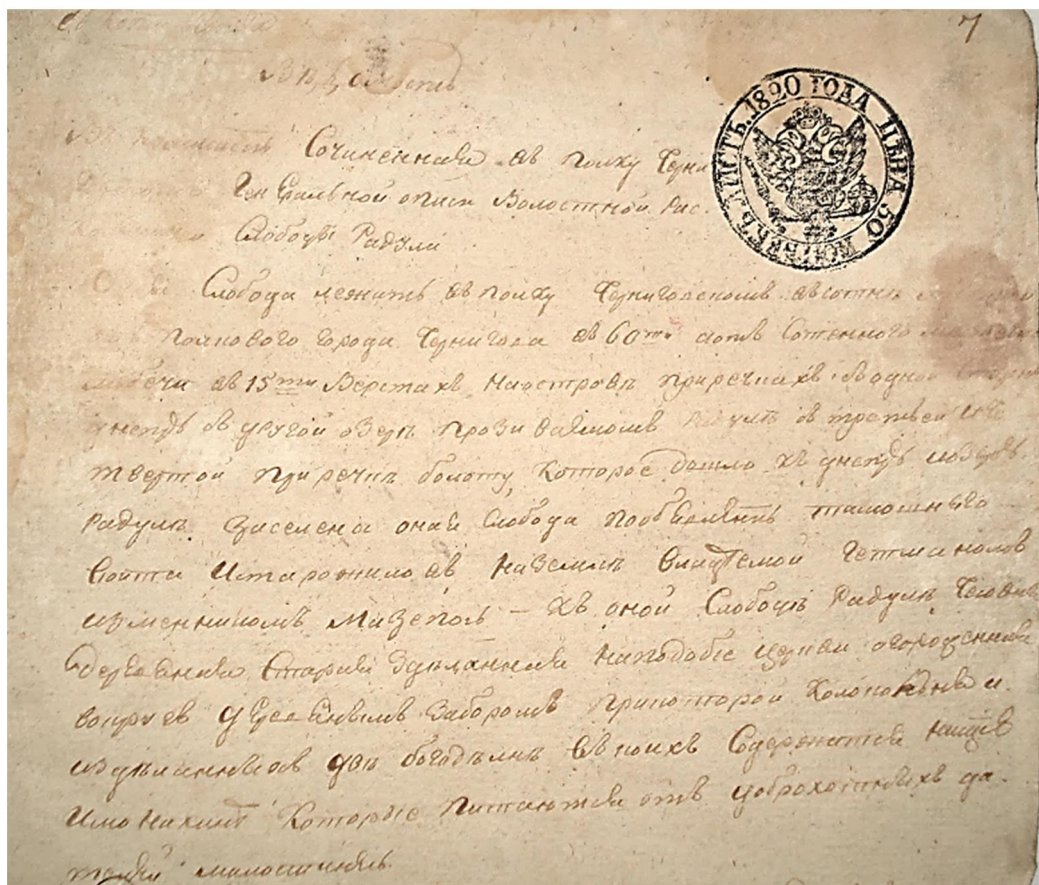 7
ЛИСТЪ. 1820 ГОДА ЦѢНА 50 КОПѢЕКЪ
Сочиненная въ полку Черни
Генеральной описи Волостной
Слободы Радули
Слобода лежитъ въ полку Черниговскомъ въ сотни
полкового города Чернигова въ 60ти отъ Сотенного
Любеча въ 15ти Верстахъ, На островѣ при речкахъ въ одной
днепръ въ другой озеръ прозиваемомъ Радулъ въ третьей
твертой при речкѣ болоту, Которое дошло къ днепръ
Радулъ Заселена оная Слобода пообявленъ тамошнего
войта И старожиловъ На Землѣ Владѣемой Гетманомъ
изменникомъ Мазепою — Въ оной Слободѣ Радулѣ Часовня
деревянная Старая Здѣланная На подобіе церкви огороженная
вокругъ деревяннымъ Заборомъ При которой Колокольня и
издѣланныхъ двѣ богодѣлнѣ Въ коихъ Содержатся нищіе
Которые Питаются отъ доброхотныхъ да
милостиною